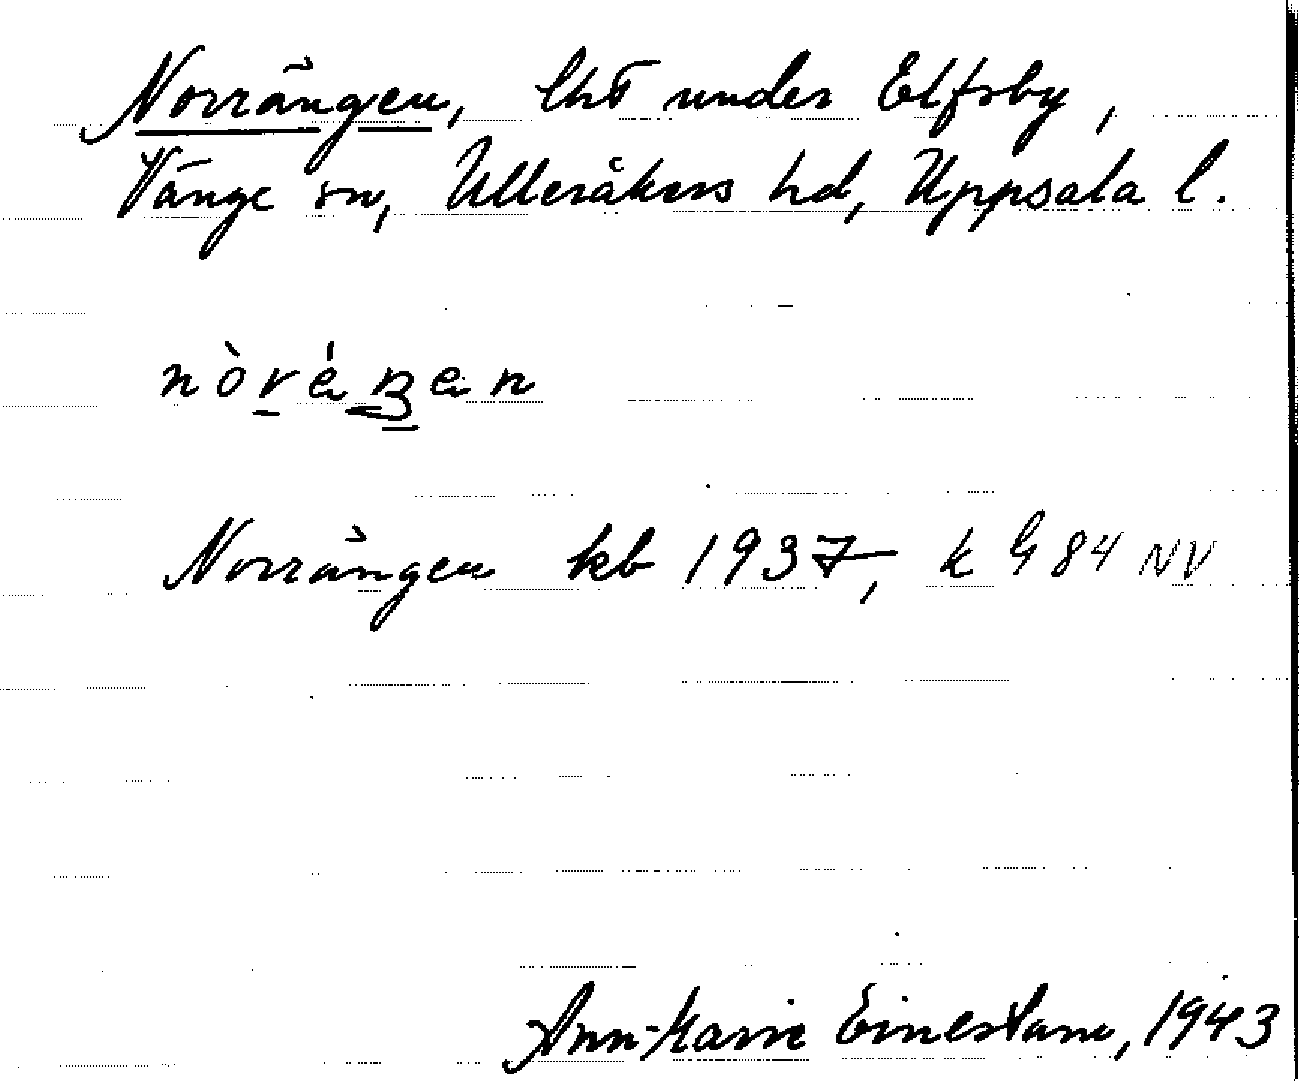 Norrängen, lht under Elfsby,
Vänge sn, Ulleråkers hd, Uppsala l.
nòráŋen
Norrängen kb 1937, k G 84 NV
Ann-Marie Einerstam, 1943